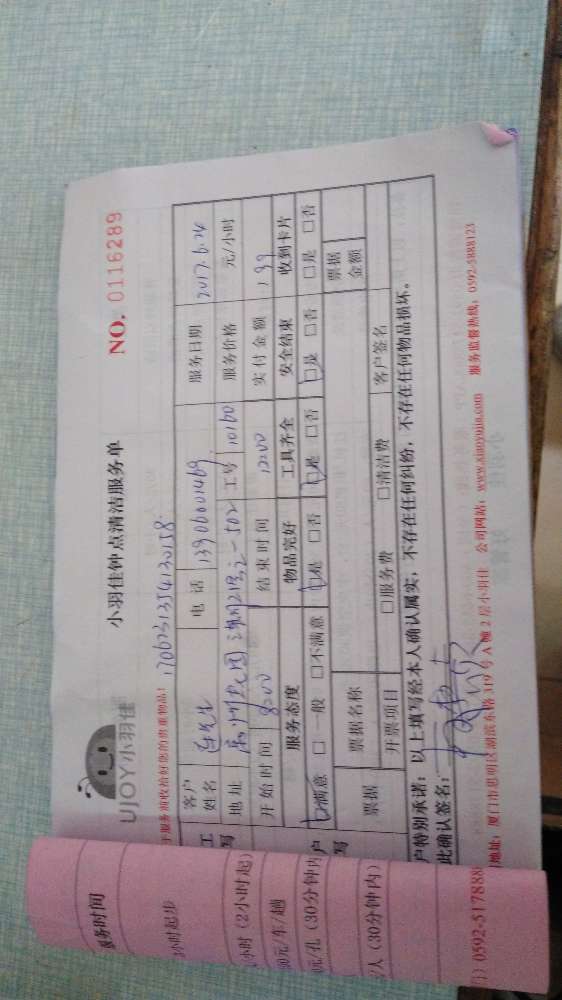 UJOY小羽佳
小羽佳钟点清洁服务单
NO. 0116289
于服务前收拾好您的贵重物品!
1706231354130158
客户姓名
电话 13906001469
服务日期 2017.6.24
地址
工号 10160
服务价格 元/小时
开始时间 8:00
结束时间 12:00
实付金额 199
服务态度 物品完好 工具齐全 安全结束 收到卡片
☑满意 □一般 □不满意 ☑是 □否 ☑是 □否 ☑是 □否 □是 □否
票据
票据名称
票据金额
开票项目 □服务费 □清洁费 客户签名
户特别承诺:以上填写经本人确认属实,不存在任何纠纷,不存在任何物品损坏。
此确认签名:
地址:厦门市思明区湖滨东路319号A幢2层小羽佳 公司网站:www.xiaoyujia.com 服务监督热线:0592-5888123
服务时间
小时起步
小时(2小时起)
00元/车/趟
元/孔(30分钟内
/人(30分钟内)
0592-517888